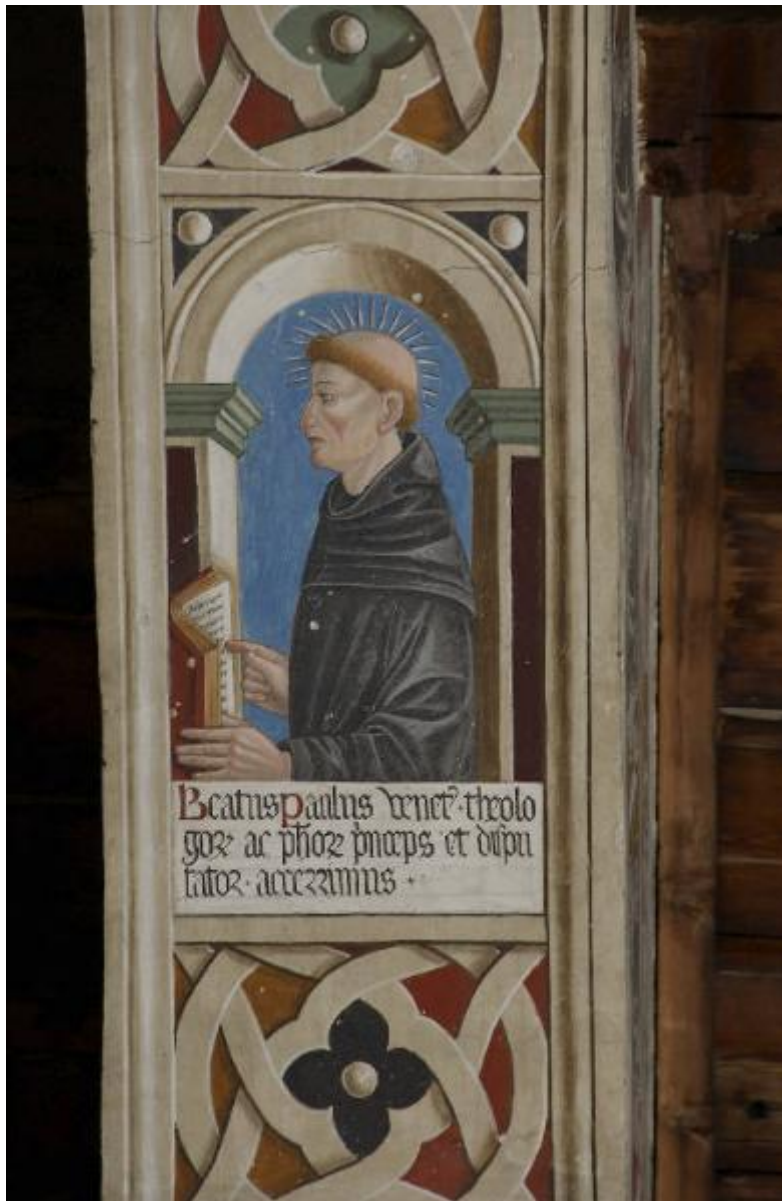 Beatus Paulus venet⁹ · theolo
goꝝ ac ph̄oꝝ p̄nceps et dispu
tator · acerrimus ·